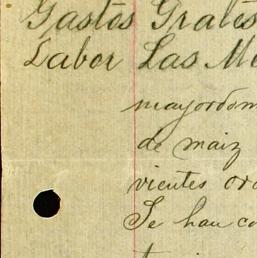 Gastos Grales
Labor Las M
mayordom
de maiz
vientes or
Se han co